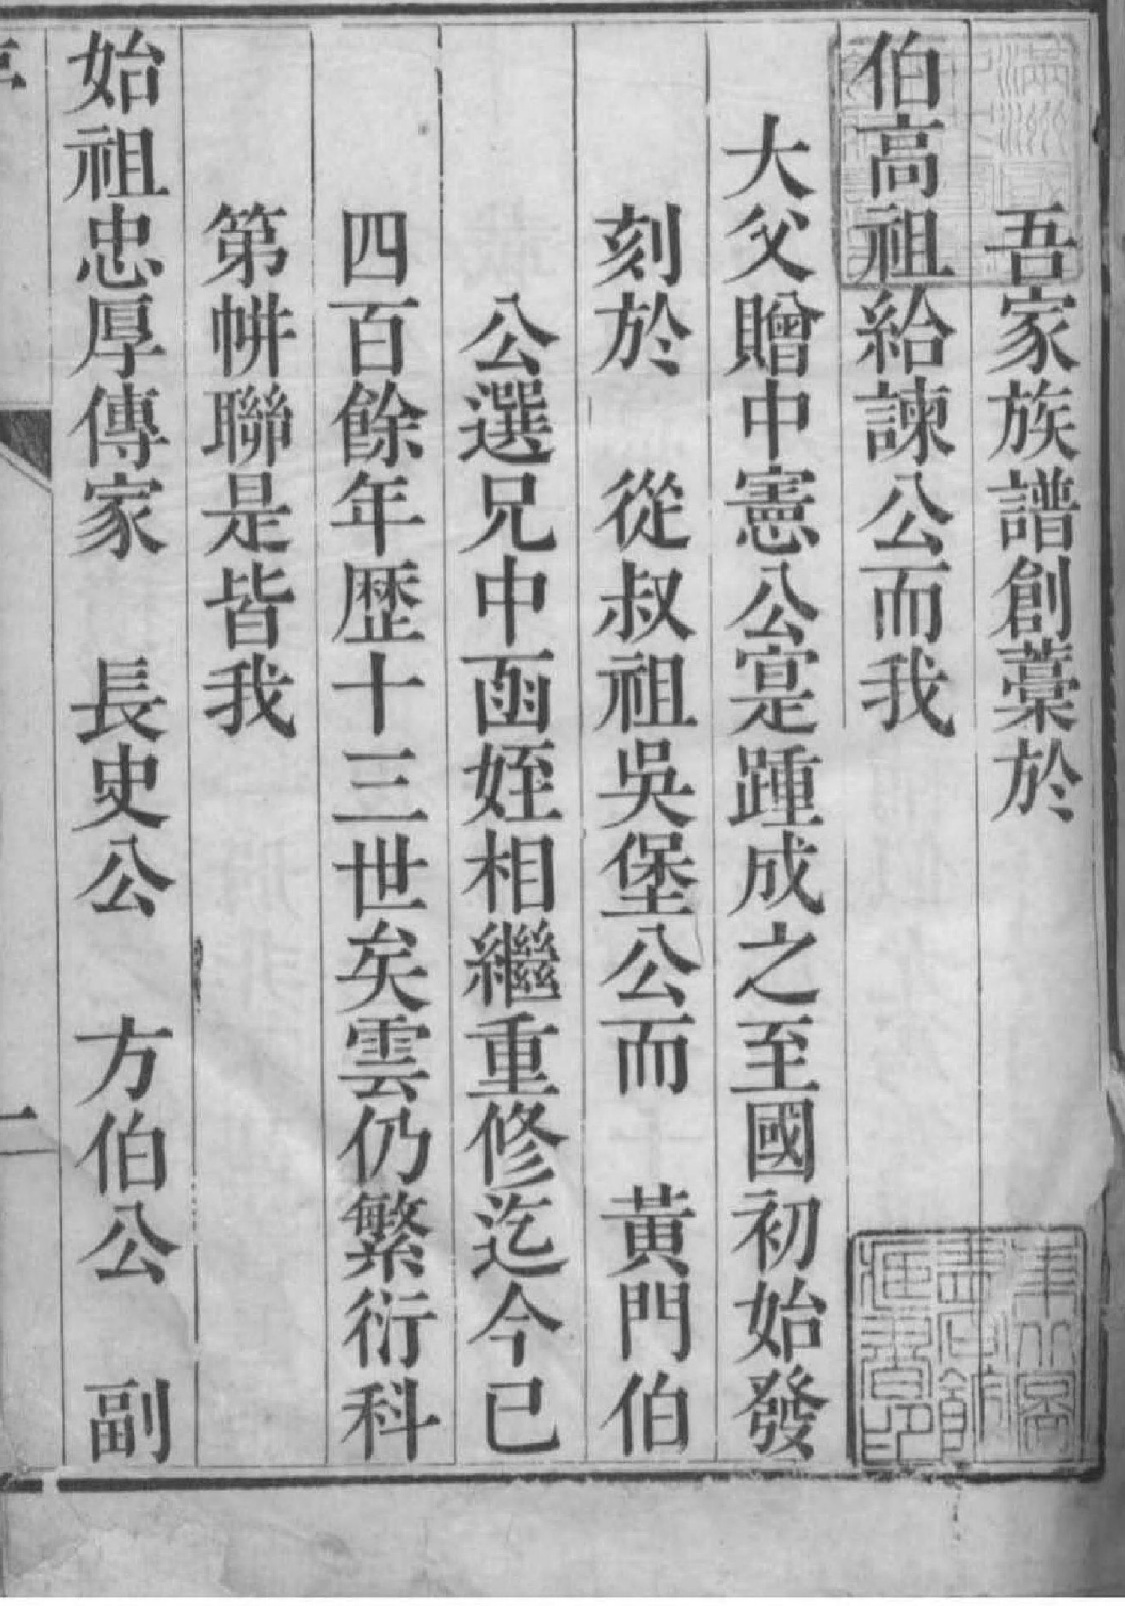 吾家族譜創藁於
伯高祖給諫公而我
大父贈中憲公寔踵成之至國初始發
刻於　從叔祖吳堡公而　黃門伯
公選兄中函姪相繼重修迄今已
四百餘年歷十三世矣雲仍繁衍科
第帡聯是皆我
始祖忠厚傳家　長史公　方伯公　副